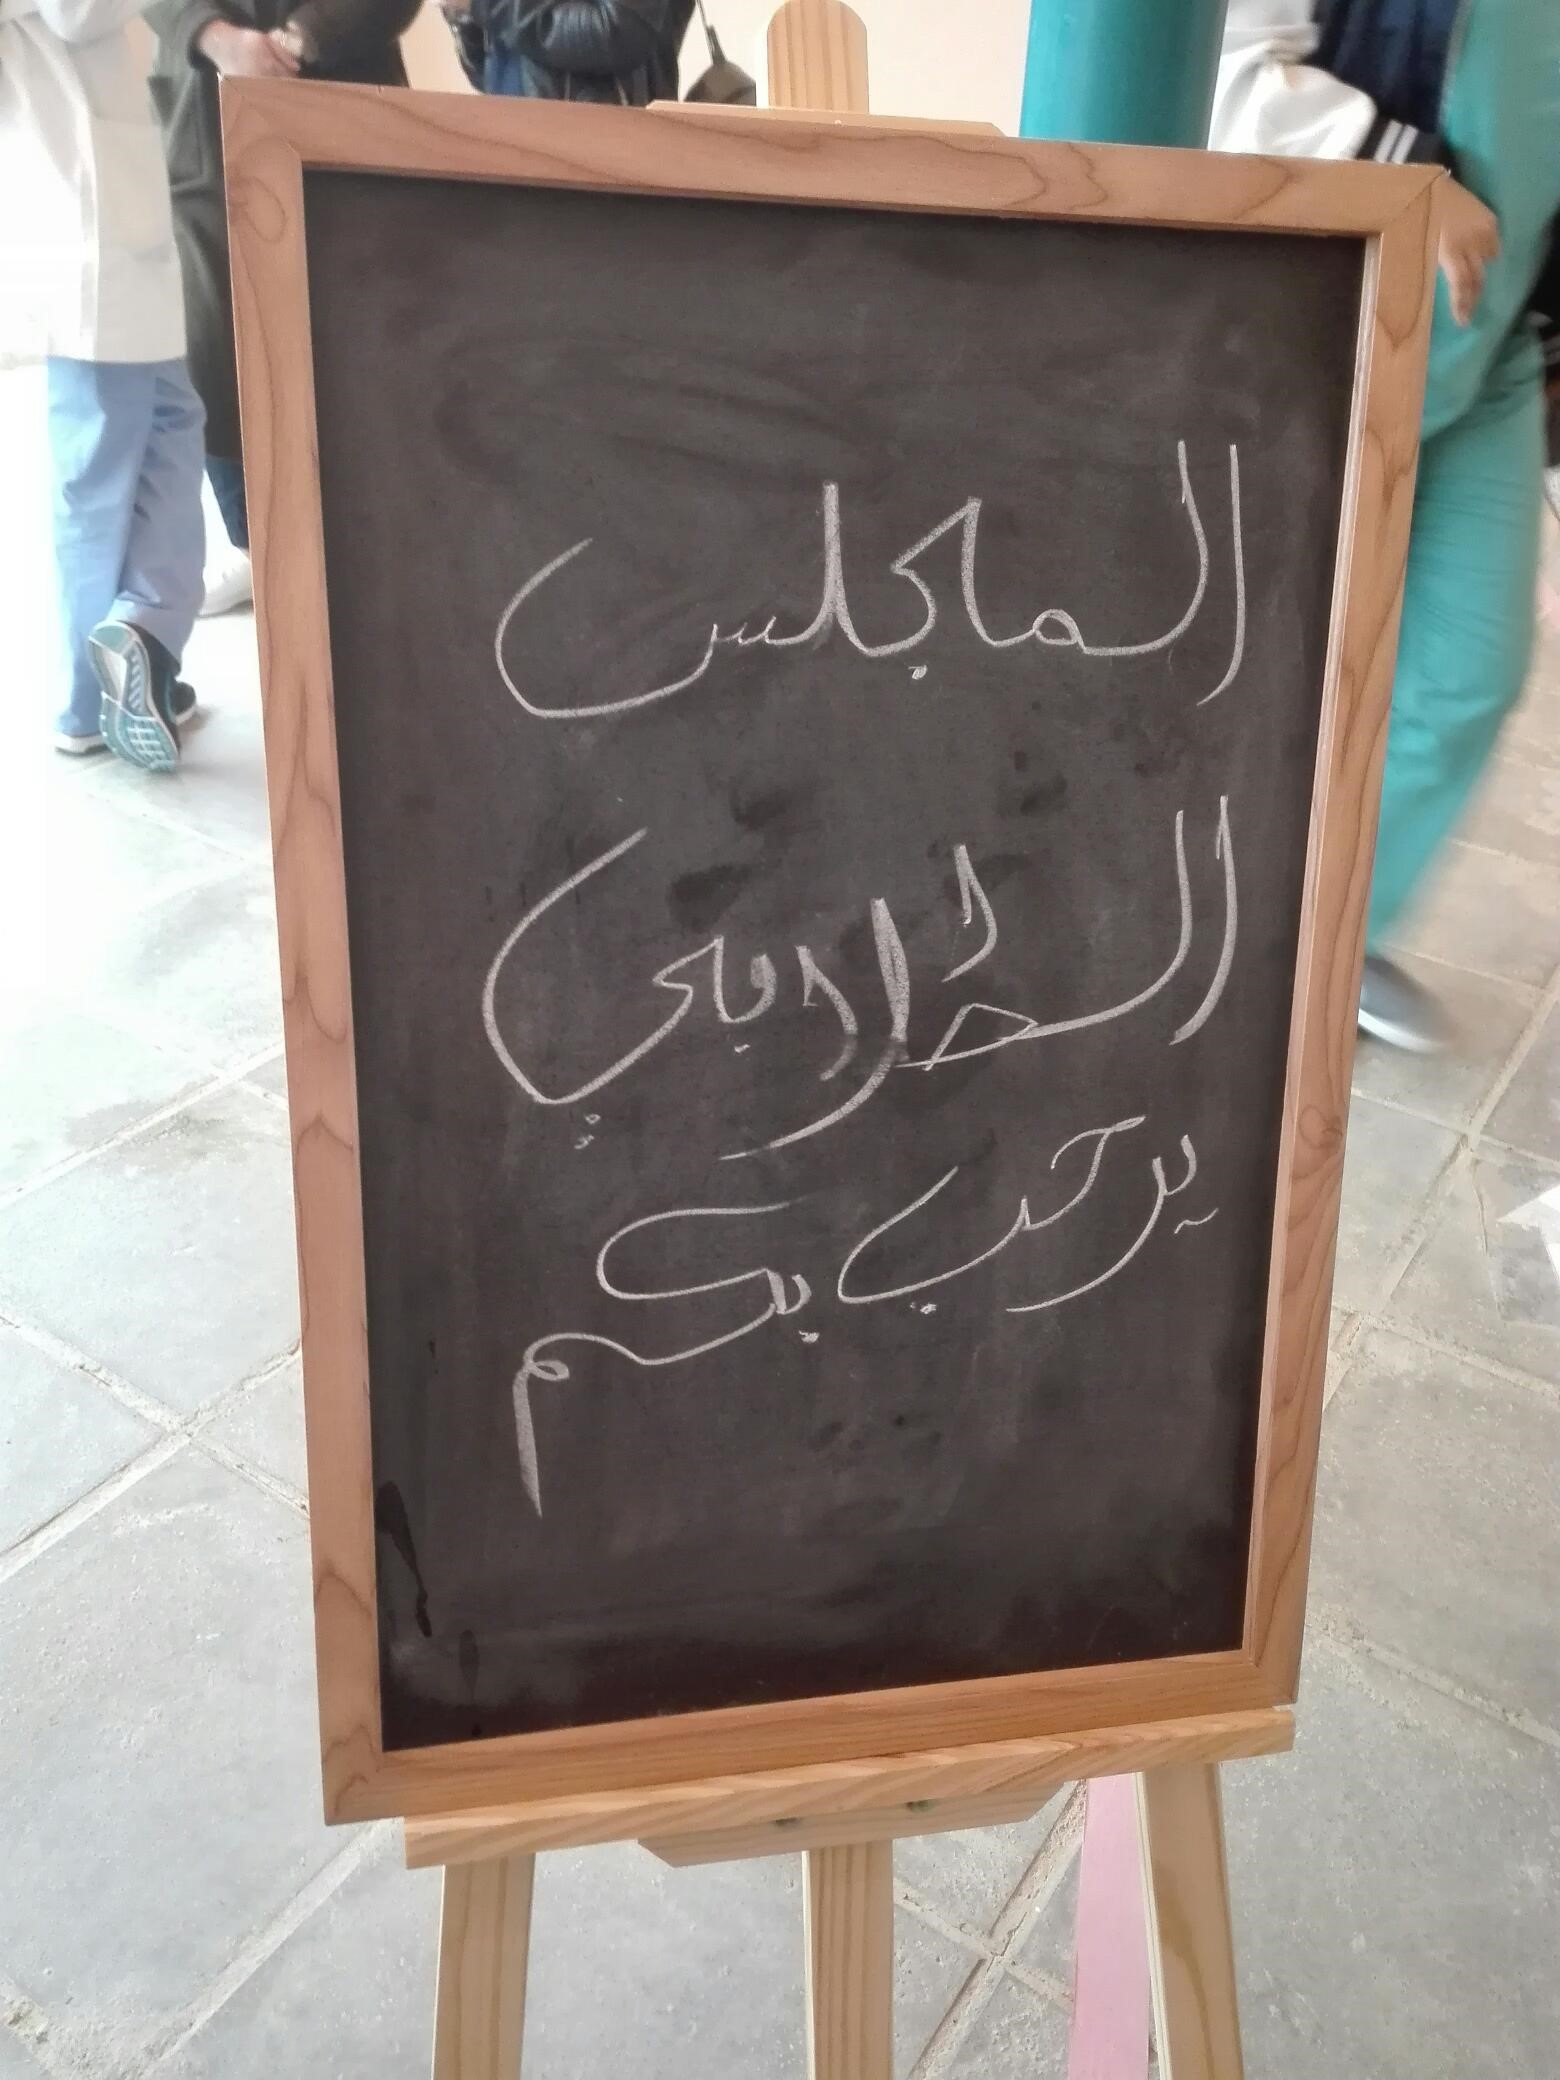 المجلس
الطلابي
يرحب بكم